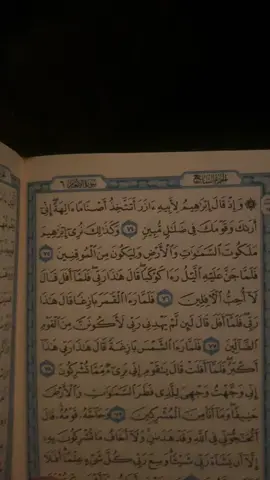 الجزء السابع سورة الأنعام ٦
۞ وَإِذْ قَالَ إِبْرَٰهِيمُ لِأَبِيهِ ءَازَرَ أَتَتَّخِذُ أَصْنَامًا ءَالِهَةً إِنِّىٓ
أَرَىٰكَ وَقَوْمَكَ فِى ضَلَٰلٍ مُّبِينٍ ٧٤ وَكَذَٰلِكَ نُرِىٓ إِبْرَٰهِيمَ
مَلَكُوتَ ٱلسَّمَٰوَٰتِ وَٱلْأَرْضِ وَلِيَكُونَ مِنَ ٱلْمُوقِنِينَ ٧٥
فَلَمَّا جَنَّ عَلَيْهِ ٱلَّيْلُ رَءَا كَوْكَبًا قَالَ هَٰذَا رَبِّى فَلَمَّآ أَفَلَ قَالَ
لَآ أُحِبُّ ٱلْءَافِلِينَ ٧٦ فَلَمَّا رَءَا ٱلْقَمَرَ بَازِغًا قَالَ هَٰذَا
رَبِّى فَلَمَّآ أَفَلَ قَالَ لَئِن لَّمْ يَهْدِنِى رَبِّى لَأَكُونَنَّ مِنَ ٱلْقَوْمِ
ٱلضَّآلِّينَ ٧٧ فَلَمَّا رَءَا ٱلشَّمْسَ بَازِغَةً قَالَ هَٰذَا رَبِّى هَٰذَآ
أَكْبَرُ فَلَمَّآ أَفَلَتْ قَالَ يَٰقَوْمِ إِنِّى بَرِىٓءٌ مِّمَّا تُشْرِكُونَ ٧٨
إِنِّى وَجَّهْتُ وَجْهِىَ لِلَّذِى فَطَرَ ٱلسَّمَٰوَٰتِ وَٱلْأَرْضَ
حَنِيفًا وَمَآ أَنَا۠ مِنَ ٱلْمُشْرِكِينَ ٧٩ وَحَآجَّهُۥ قَوْمُهُۥ قَالَ
أَتُحَٰٓجُّوٓنِّى فِى ٱللَّهِ وَقَدْ هَدَىٰنِ وَلَآ أَخَافُ مَا تُشْرِكُونَ بِهِۦٓ
إِلَّآ أَن يَشَآءَ رَبِّى شَيْـًٔا وَسِعَ رَبِّى كُلَّ شَىْءٍ عِلْمًا أَفَلَا